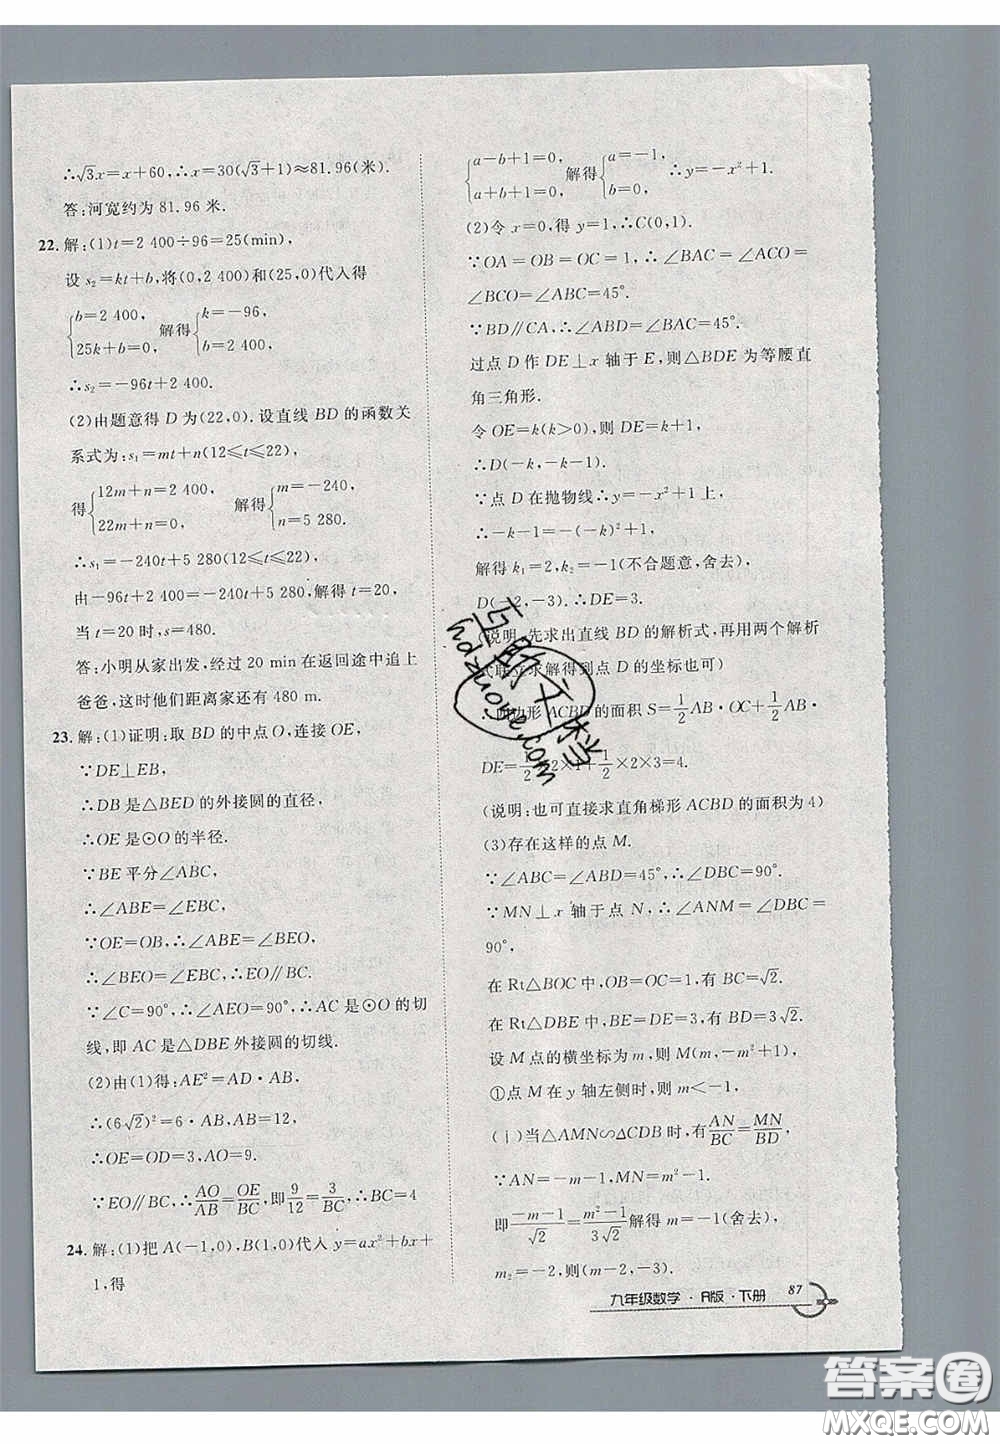 ∴√3x=x+60,∴x=30(√3+1)≈81.96(米).
答:河宽约为 81.96 米.
22. 解:(1)t=2 400÷96=25(min),
设 s₂=kt+b,将(0,2 400)和(25,0)代入得
{b=2 400, 25k+b=0, 解得{k=-96, b=2 400.
∴s₂=-96t+2 400.
(2)由题意得 D 为(22,0). 设直线 BD 的函数关
系式为:s₁=mt+n(12≤t≤22),
得{12m+n=0, 22m+n=0, 解得{m=-240, n=5 280.
∴s₁=-240t+5 280(12≤t≤22),
由-96t+2 400=-240t+5 280,解得 t=20,
当 t=20 时,s=480.
答:小明从家出发,经过 20 min 在返回途中追上
爸爸,这时他们距离家还有 480 m.
23. 解:(1)证明:取 BD 的中点O,连接 OE,
∵DE⊥EB,
∴DB 是△BED 的外接圆的直径,
∴OE 是⊙O 的半径.
∵BE 平分∠ABC,
∴∠ABE=∠EBC,
∵OE=OB,∴∠ABE=∠BEO,
∴∠BEO=∠EBC,∴EO∥BC.
∵∠C=90°,∴∠AEO=90°,∴AC 是⊙O 的切
线,即 AC 是△DBE 外接圆的切线.
(2)由(1)得:AE²=AD·AB,
∴(6√2)²=6·AB,AB=12,
∴OE=OD=3,AO=9.
∵EO∥BC,∴AO/AB=OE/BC,即9/12=3/BC,∴BC=4
24. 解:(1)把 A(-1,0),B(1,0)代入 y=ax²+bx+
1,得
{a-b+1=0, a+b+1=0, 解得{a=-1, b=0. ∴y=-x²+1
(2)令 x=0,得 y=1,∴C(0,1)
∵OA=OB=OC=1,∴∠BAC=∠ACO=
∠BCO=∠ABC=45°.
∵BD∥CA,∴∠ABD=∠BAC=45°.
过点 D 作 DE⊥x 轴于 E,则△BDE 为等腰直
角三角形.
令 OE=k(k>0),则 DE=k+1,
∴D(-k,-k-1).
∵点 D 在抛物线∴y=-x²+1 上,
∴-k-1=-(-k)²+1,
解得 k₁=2,k₂=-1(不合题意,舍去),
D(-2,-3).∴DE=3.
(说明:先求出直线 BD 的解析式,再用两个解析
式联立求解得到点 D 的坐标也可)
∴四边形 ACBD 的面积 S=1/2 AB·OC+1/2 AB·
DE=1/2×2×1+1/2×2×3=4.
(说明:也可直接求直角梯形 ACBD 的面积为 4)
(3)存在这样的点 M.
∵∠ABC=∠ABD=45°,∴∠DBC=90°.
∵MN⊥x 轴于点 N,∴∠ANM=∠DBC=
90°,
在 Rt△BOC 中,OB=OC=1,有 BC=√2.
在 Rt△DBE 中,BE=DE=3,有 BD=3√2.
设 M 点的横坐标为 m,则 M(m,-m²+1)
①点 M 在 y 轴左侧时,则 m<-1,
(ⅰ)当△AMN∽△CDB 时,有AN/BC=MN/BD,
∵AN=-m-1,MN=m²-1,
即(-m-1)/√2=(m²-1)/3√2解得 m=-1(舍去),
m₂=-2,则(-2,-3).
九年级数学·R版·下册 87
互助文档
hdzuoye.com
答案圈
MXQE.COM